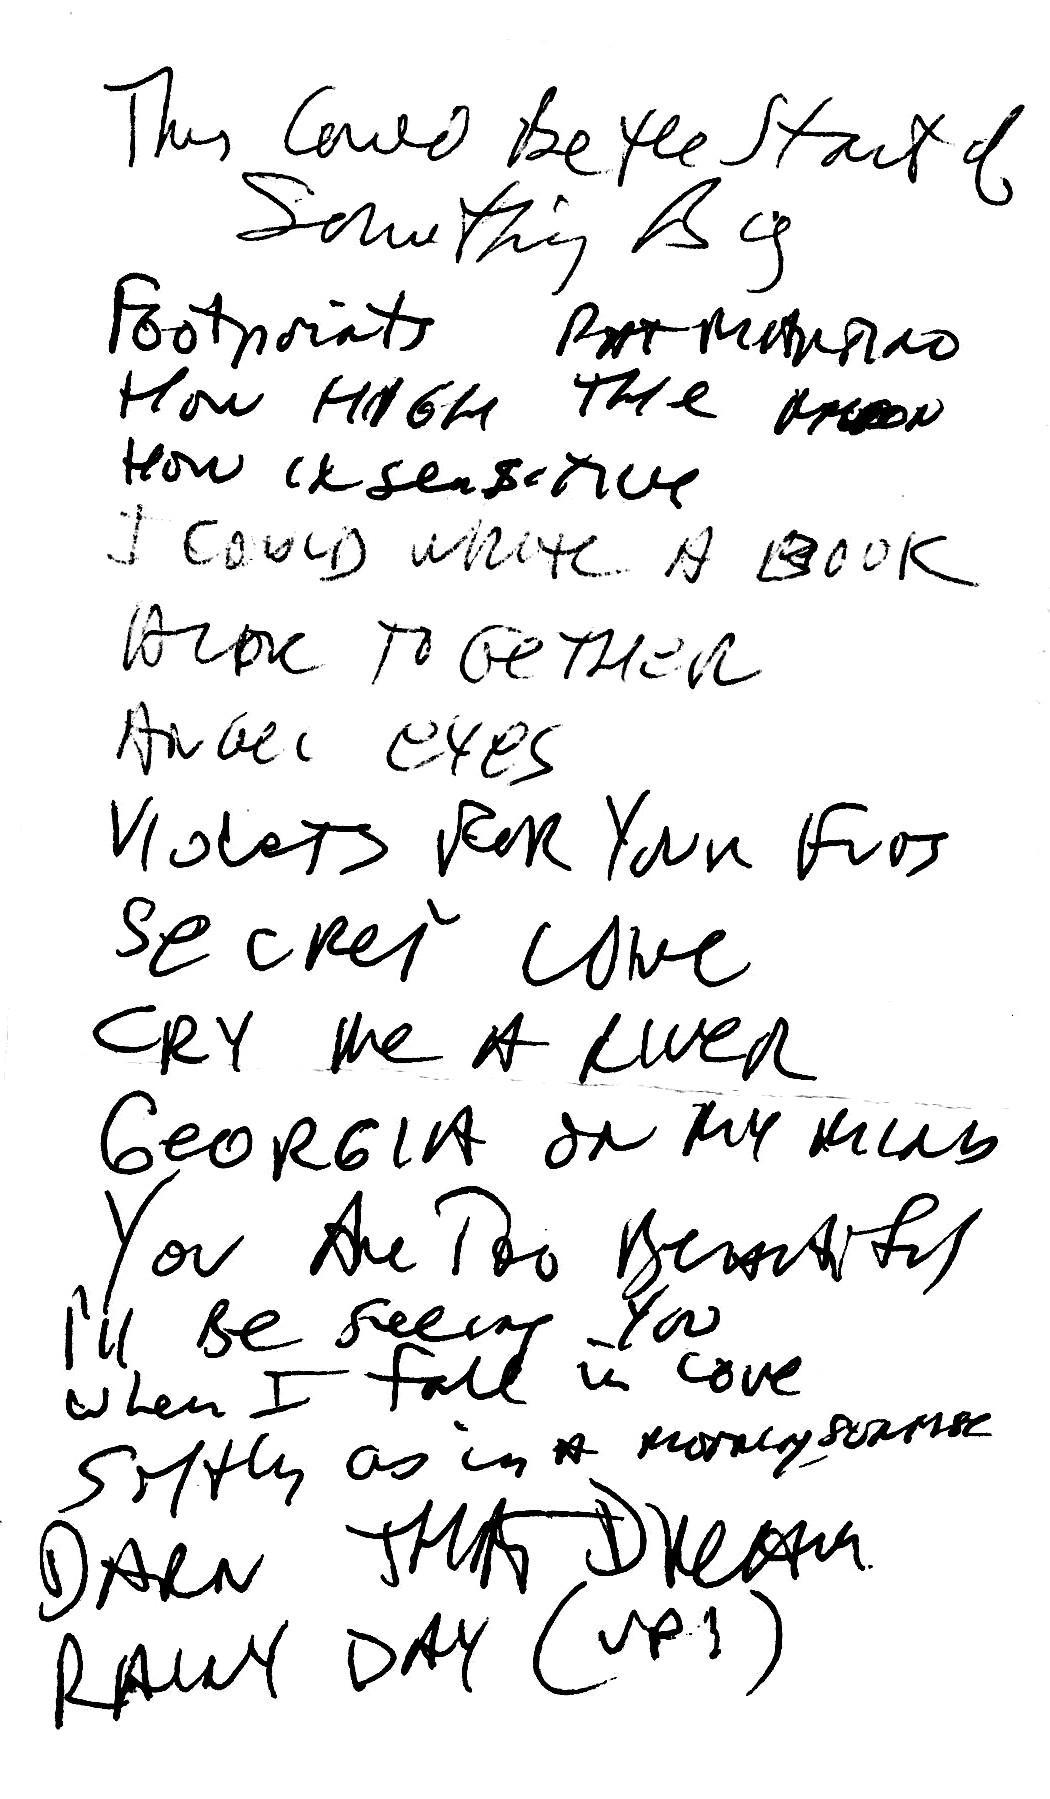 This Could Be the Start of
Something Big
Footprints Pat Martino
How HIGH THE MOON
How insensitive
I COULD WRITE A BOOK
ALONE TOGETHER
ANGEL EYES
VIOLETS FOR YOUR FURS
SECRET LOVE
CRY ME A RIVER
GEORGIA ON MY MIND
You Are Too Beautiful
I'll Be Seeing You
when I fall in love
Softly as in A MORNING SUNRISE
DARN THAT DREAM
RAINY DAY